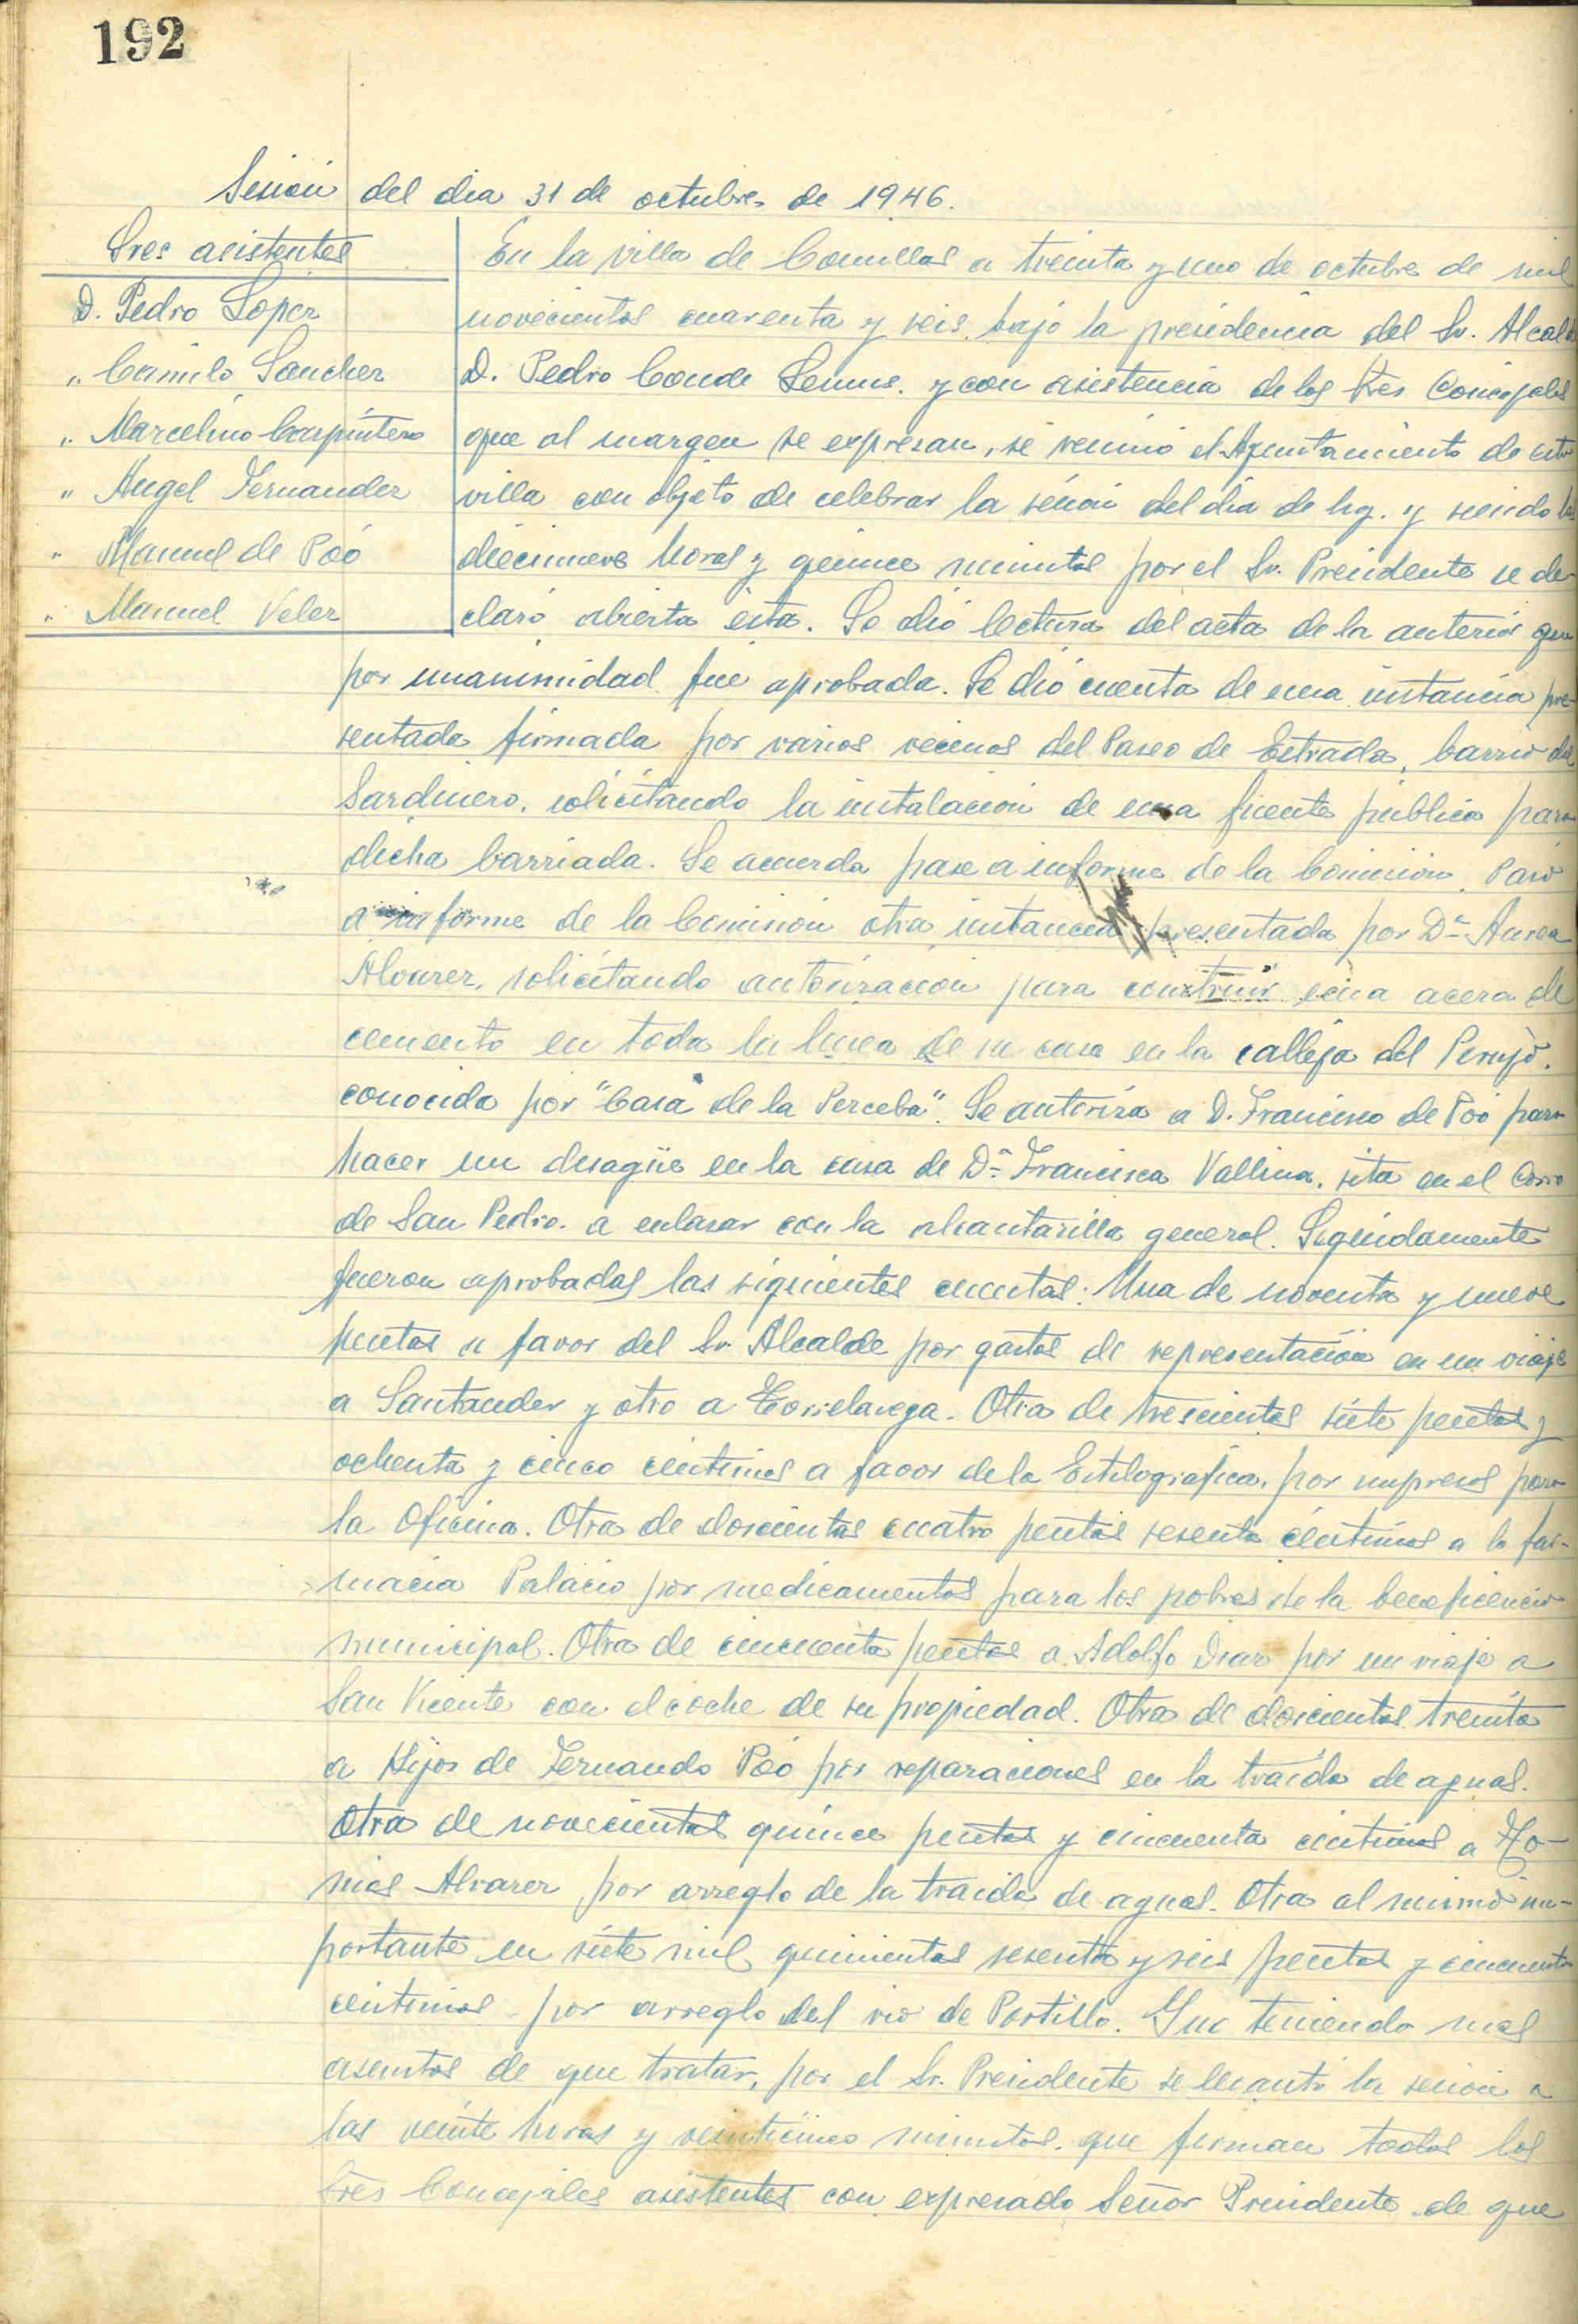 192
Sesión del dia 31 de octubre de 1946.
Sres asistentes
D. Pedro Lopez
" Camilo Sanchez
" Marcelino Carpintero
" Angel Fernandez
" Manuel de Poó
" Manuel Velez
En la villa de Comillas a treinta y uno de octubre de mil
novecientos cuarenta y seis, bajo la presidencia del Sr. Alcalde
D. Pedro Conde y con asistencia de los Sres Concejales
que al margen se expresan, se reunió el Ayuntamiento de esta
villa con objeto de celebrar la sesión del dia de hoy. y siendo las
diecinueve horas y quince minutos por el Sr. Presidente se de-
claró abierta ésta. Se dió lectura del acta de la anterior que
por unanimidad fué aprobada. Se dió cuenta de una instancia pre-
sentada firmada por varios vecinos del Paseo de Estrada, barrio del
Sardinero, solicitando la instalación de una fuente publica para
dicha barriada. Se acuerda pase a informe de la Comisión. Pasó
a informe de la Comisión otra instancia presentada por Dª Aurea
Alvarez, solicitando autorización para construir una acera de
cemento en toda la linea de su casa en la calleja del Perujo,
conocida por "Casa de la Perceba". Se autoriza a D. Francisco de Poó para
hacer un desagüe en la casa de Dª Francisca Vallina, sita en el Corro
de San Pedro, a enlazar con la alcantarilla general. Seguidamente
fueron aprobadas las siguientes cuentas: Una de noventa y nueve
pesetas a favor del Sr. Alcalde por gastos de representación en un viaje
a Santander y otro a Torrelavega. Otra de trescientas siete pesetas y
ochenta y cinco centimos a favor de la Estilografica, por impresos para
la Oficina. Otra de doscientas cuatro pesetas sesenta céntimos a la far-
macia Palacio por medicamentos para los pobres de la beneficencia
municipal. Otra de cincuenta pesetas a Adolfo Diaz por un viaje a
San Vicente con el coche de su propiedad. Otra de doscientas treinta
a Hijos de Fernando Poó por reparaciones en la traida de aguas.
Otra de novecientas quince pesetas y cincuenta centimos a
Alvarez por arreglo de la traida de aguas. Otra al mismo im-
portante en siete mil quinientas sesenta y seis pesetas y cincuenta
centimos por arreglo del rio de Portillo. Y no teniendo mas
asuntos de que tratar, por el Sr. Presidente se levantó la sesión a
las veinte horas y veinticinco minutos, que firman todos los
Sres Concejales asistentes con expresado Señor Presidente de que